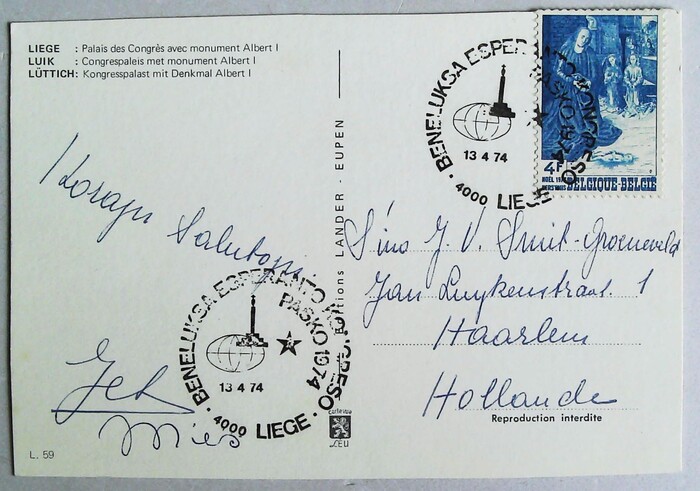 LIEGE : Palais des Congrès avec monument Albert I
LUIK : Congrespaleis met monument Albert I
LÜTTICH: Kongresspalast mit Denkmal Albert I
Korajn Salutojn
Jet
Mies
L. 59
BENELUKSA ESPERANTO KONGRESO
PASKO 1974
13 4 74
4000 LIEGE
Editions LANDER - EUPEN
BENELUKSA ESPERANTO KONGRESO
PASKO 1974
13 4 74
4000 LIEGE
4F
NOËL
BELGIQUE-BELGIË
Sino J. V. Smit-Groeneveld
Jan Luykenstraat 1
Haarlem
Hollande
Reproduction interdite